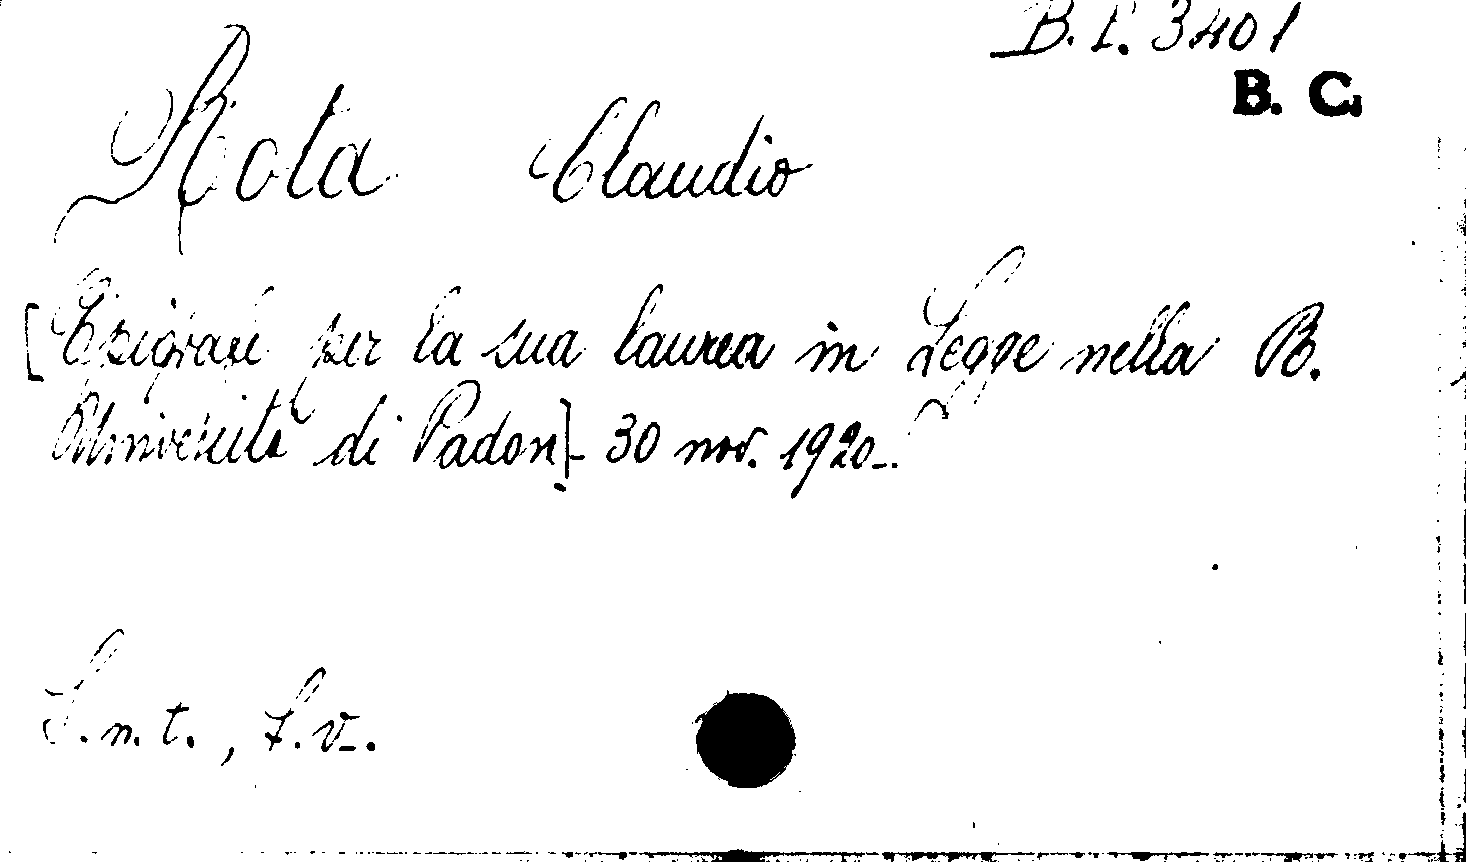 B. P. 3401
B. C.
Rota Claudio
[Epigrafe per la sua laurea in Legge nella R.
Università di Padova] - 30 nov. 1920 -.
S. n. t., f. v.